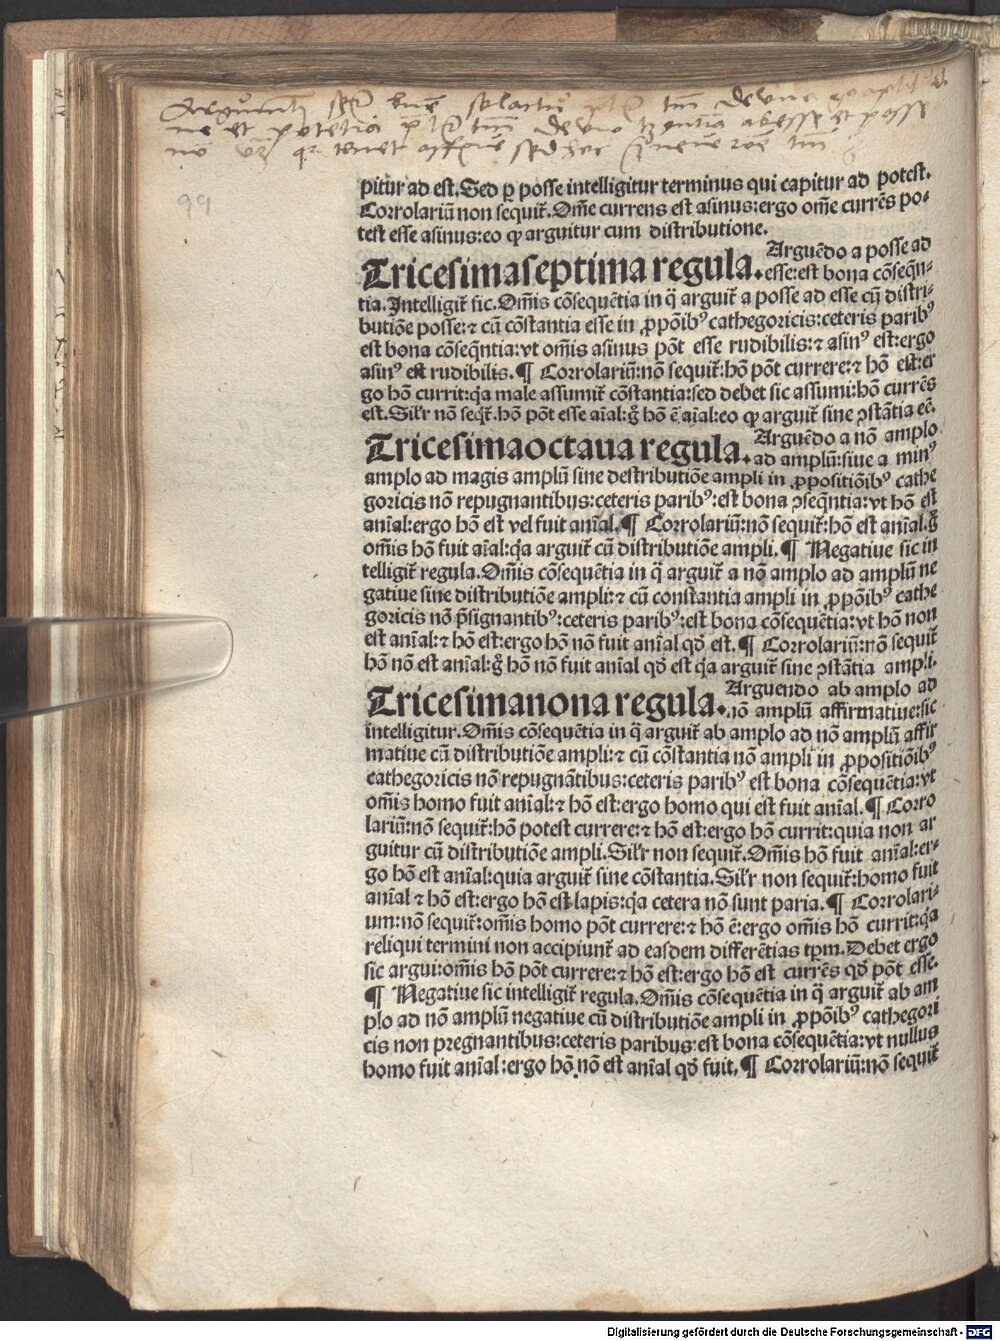 99
pitur ad est. Sed ꝑ posse intelligitur terminus qui capitur ad potest.
Corrolariū non sequit᷑. Om̄e currens est asinus: ergo om̄e currēs po-
test esse asinus: eo ꝙ arguitur cum distributione.
Tricesimaseptima regula. Arguēdo a posse ad
esse: est bona cōseq̄n-
tia. Intelligit᷑ sic. Om̄is cōsequētia in q̄ arguit᷑ a posse ad esse cū distri-
butiōe posse: ⁊ cū cōstantia esse in ꝓpōibꝰ cathegoricis: ceteris paribꝰ
est bona cōseq̄ntia: vt om̄is asinus pōt esse rudibilis: ⁊ asinꝰ est: ergo
asinꝰ est rudibilis. ¶ Corrolariū: nō sequit᷑: hō pōt currere: ⁊ hō est: er
go hō currit: q̄a male assumit᷑ cōstantia: sed debet sic assumi: hō currēs
est. Sil'r nō seqt᷑. hō pōt esse aīal: g̊ hō ē aīal: eo ꝙ arguit᷑ sine ꝯstātia eē.
Tricesimaoctaua regula. Arguēdo a nō amplo
ad amplū: siue a minꝰ
amplo ad magis amplū sine destributiōe ampli in ꝓpositiōibꝰ cathe
goricis nō repugnantibus: ceteris paribꝰ: est bona ꝯseq̄ntia: vt hō est
anīal: ergo hō est vel fuit anīal. ¶ Corrolariū: nō sequit᷑: hō est anīal. g̊
om̄is hō fuit aīal: q̄a arguit᷑ cū distributiōe ampli. ¶ Negatiue sic in
telligit᷑ regula. Om̄is cōsequētia in q̄ arguit᷑ a nō amplo ad amplū ne
gatiue sine distributiōe ampli: ⁊ cū constantia ampli in ꝓpōibꝰ cathe
goricis nō p̄signantibꝰ: ceteris paribꝰ: est bona cōsequētia: vt hō non
est anīal: ⁊ hō est: ergo hō nō fuit anīal qd̄ est. ¶ Corrolariū: nō sequit᷑
hō nō est anīal: g̊ hō nō fuit anīal qd̄ est q̄a arguit᷑ sine ꝯstātia ampli.
Tricesimanona regula. Arguendo ab amplo ad
nō amplū affirmatiue: sic
intelligitur. Om̄is cōsequētia in q̄ arguit᷑ ab amplo ad nō amplū affir
matiue cū distributiōe ampli: ⁊ cū cōstantia nō ampli in ꝓpositiōibꝰ
cathegoricis nō repugnātibus: ceteris paribꝰ est bona cōsequētia: vt
om̄is homo fuit anīal: ⁊ hō est: ergo homo qui est fuit anīal. ¶ Corro
lariū: nō sequit᷑: hō potest currere: ⁊ hō est: ergo hō currit: quia non ar
guitur cū distributiōe ampli. Sil'r non sequit᷑. Om̄is hō fuit anīal: er-
go hō est anīal: quia arguit᷑ sine cōstantia. Sil'r non sequit᷑: homo fuit
anīal ⁊ hō est: ergo hō est lapis: q̄a cetera nō sunt paria. ¶ Corrolari-
um: nō sequit᷑: om̄is homo pōt currere: ⁊ hō ē: ergo om̄is hō currit: q̄a
reliqui termini non accipiunt᷑ ad easdem differētias tp̄m. Debet ergo
sic argui: om̄is hō pōt currere: ⁊ hō est: ergo hō est currēs qd̄ pōt esse.
¶ Negatiue sic intelligit᷑ regula. Om̄is cōsequētia in q̄ arguit᷑ ab am
plo ad nō amplū negatiue cū distributiōe ampli in ꝓpōibꝰ cathegori
cis non pregnantibus: ceteris paribus: est bona cōsequētia: vt nullus
homo fuit anīal: ergo hō nō est anīal qd̄ fuit. ¶ Corrolariū: nō sequit᷑
Digitalisierung gefördert durch die Deutsche Forschungsgemeinschaft - DFG